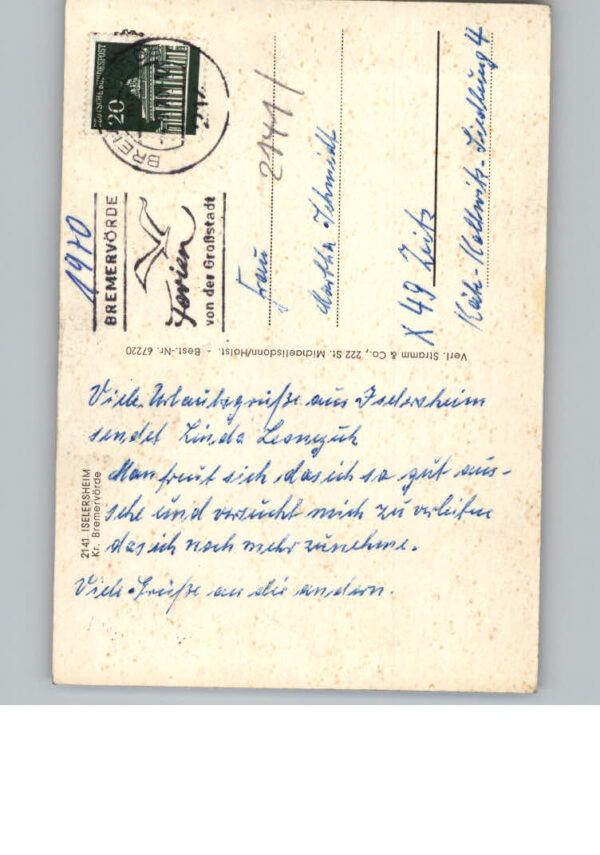 DEUTSCHE BUNDESPOST
20
BREM
1970
BREMERVÖRDE
Ferien
von der Großstadt
2141/
Frau
Martha Schmidt
X 49 Zeitz
Käthe-Kollwitz-Siedlung 4
Verl. Stramm & Co., 222 St. Michaelisdonn/Holst. - Best.-Nr. 67220
2141 ISELERSHEIM
Kr. Bremervörde
Viele Urlaubsgrüße aus Iselersheim
sendet Linda
Man freut sich das ich so gut aus-
sehe und versucht mich zu verleiten
das ich noch mehr zunehme.
Viele Grüße an die andern.